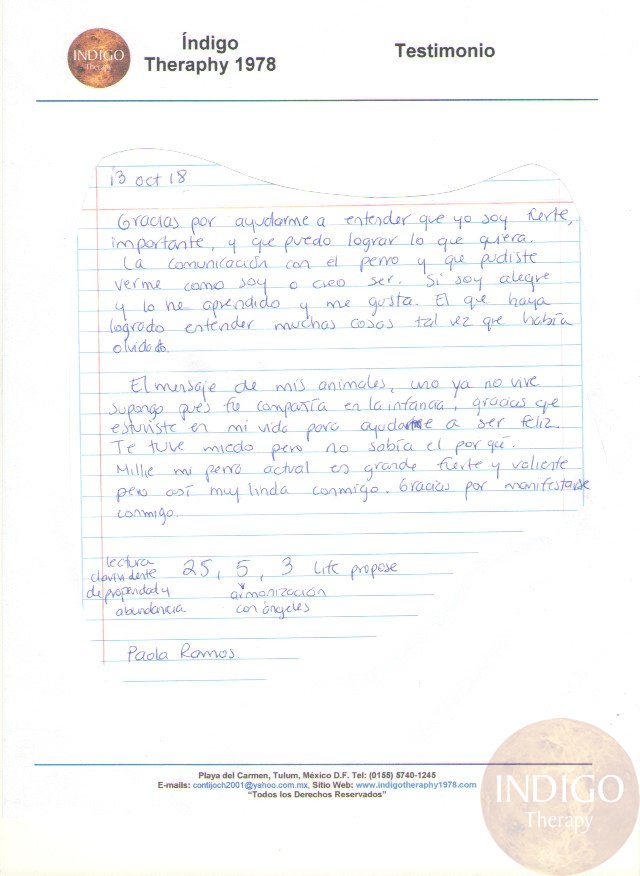 INDIGO
Therapy
Índigo
Theraphy 1978
Testimonio
13 oct 18
Gracias por ayudarme a entender que yo soy fuerte,
importante, y que puedo lograr lo que quiera.
La comunicación con el perro y que pudiste
verme como soy o creo ser. Si soy alegre
y lo he aprendido y me gusta. El que haya
logrado entender muchas cosas tal vez que había
olvidado.
El mensaje de mis animales, uno ya no vive
supongo pues fue compañía en la infancia, gracias que
estuviste en mi vida para ayudarme a ser feliz.
Te tuve miedo pero no sabía el por qué.
Millie mi perra actual es grande fuerte y valiente
pero así muy linda conmigo. Gracias por manifestarse
conmigo.
lectura
clarividente 25, 5, 3 Life propose
de properidad y armonización
abundancia con ángeles
Paola Ramos
Playa del Carmen, Tulum, México D.F. Tel: (0155) 5740-1245
E-mails: contijoch2001@yahoo.com.mx, Sitio Web: www.indigotheraphy1978.com
"Todos los Derechos Reservados"
INDIGO
Therapy